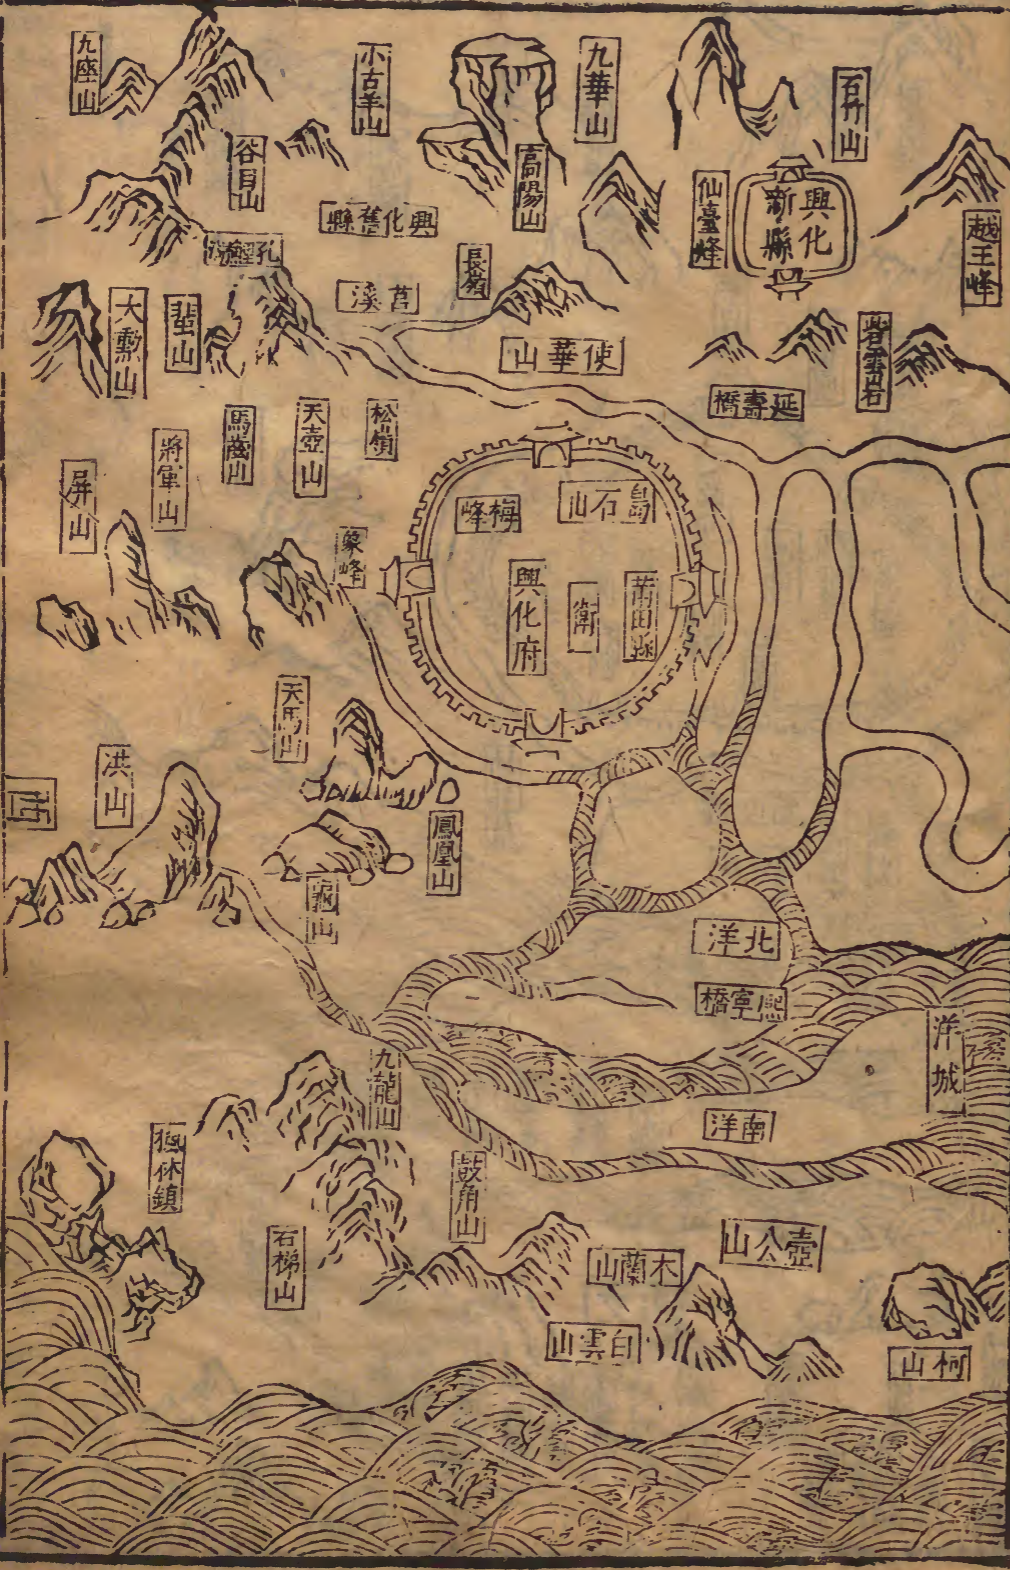 九座山
小古羊山
九華山
石竹山
谷目山
高陽山
仙臺峰
興化新縣
越王峰
興化舊縣
長嶺
莒溪
大勳山
蜚山
使華山
岩雲岩
延壽橋
馬嵗山
天壺山
松嶺
將軍山
屏山
梅峰
烏石山
象峰
興化府
衛
莆田縣
天馬山
洪山
西
鳳凰山
龜山
北洋
熙寧橋
洋城
九龍山
南洋
鼓角山
石梯山
壺公山
木蘭山
白雲山
柯山